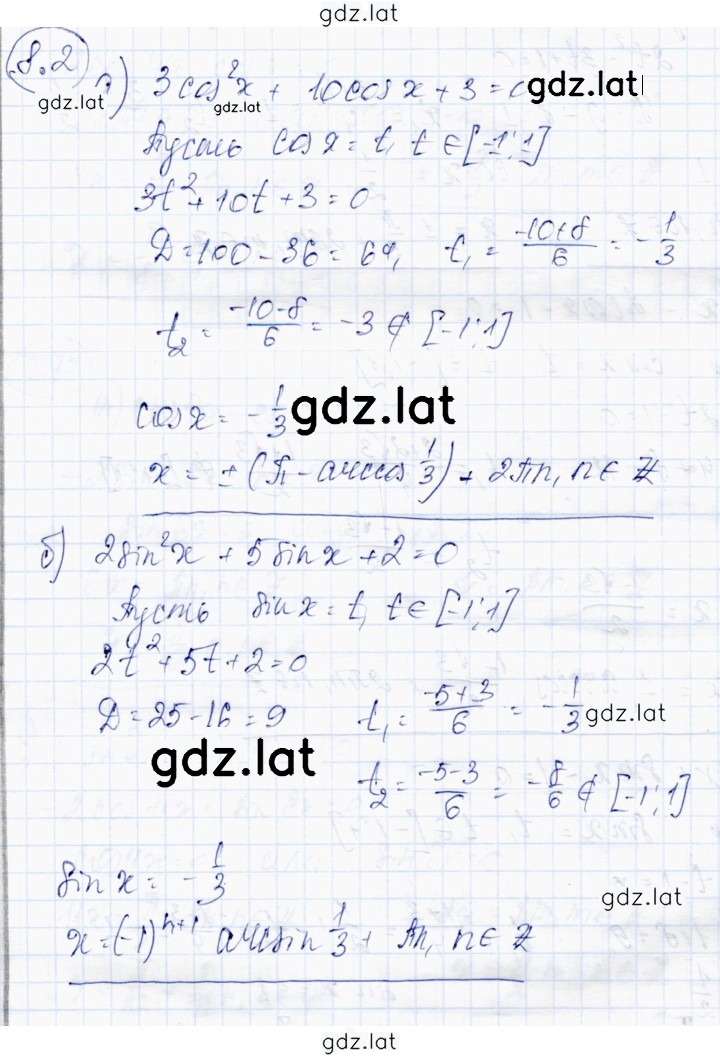 gdz.lat
8.2
gdz.lat
а) 3cos²x + 10cosx + 3 = 0
gdz.lat
gdz.lat
Пусть cosx = t, t ∈ [-1;1]
3t² + 10t + 3 = 0
D = 100 - 36 = 64, t₁ = (-10+8)/6 = -1/3
t₂ = (-10-8)/6 = -3 ∉ [-1;1]
cosx = -1/3
gdz.lat
x = ±(π - arccos 1/3) + 2πn, n ∈ Z
б) 2sin²x + 5sinx + 2 = 0
Пусть sinx = t, t ∈ [-1;1]
2t² + 5t + 2 = 0
D = 25 - 16 = 9 t₁ = (-5+3)/6 = -1/3
gdz.lat
gdz.lat
t₂ = (-5-3)/6 = -8/6 ∉ [-1;1]
sinx = -1/3
gdz.lat
x = (-1)ⁿ⁺¹ arcsin 1/3 + πn, n ∈ Z
gdz.lat